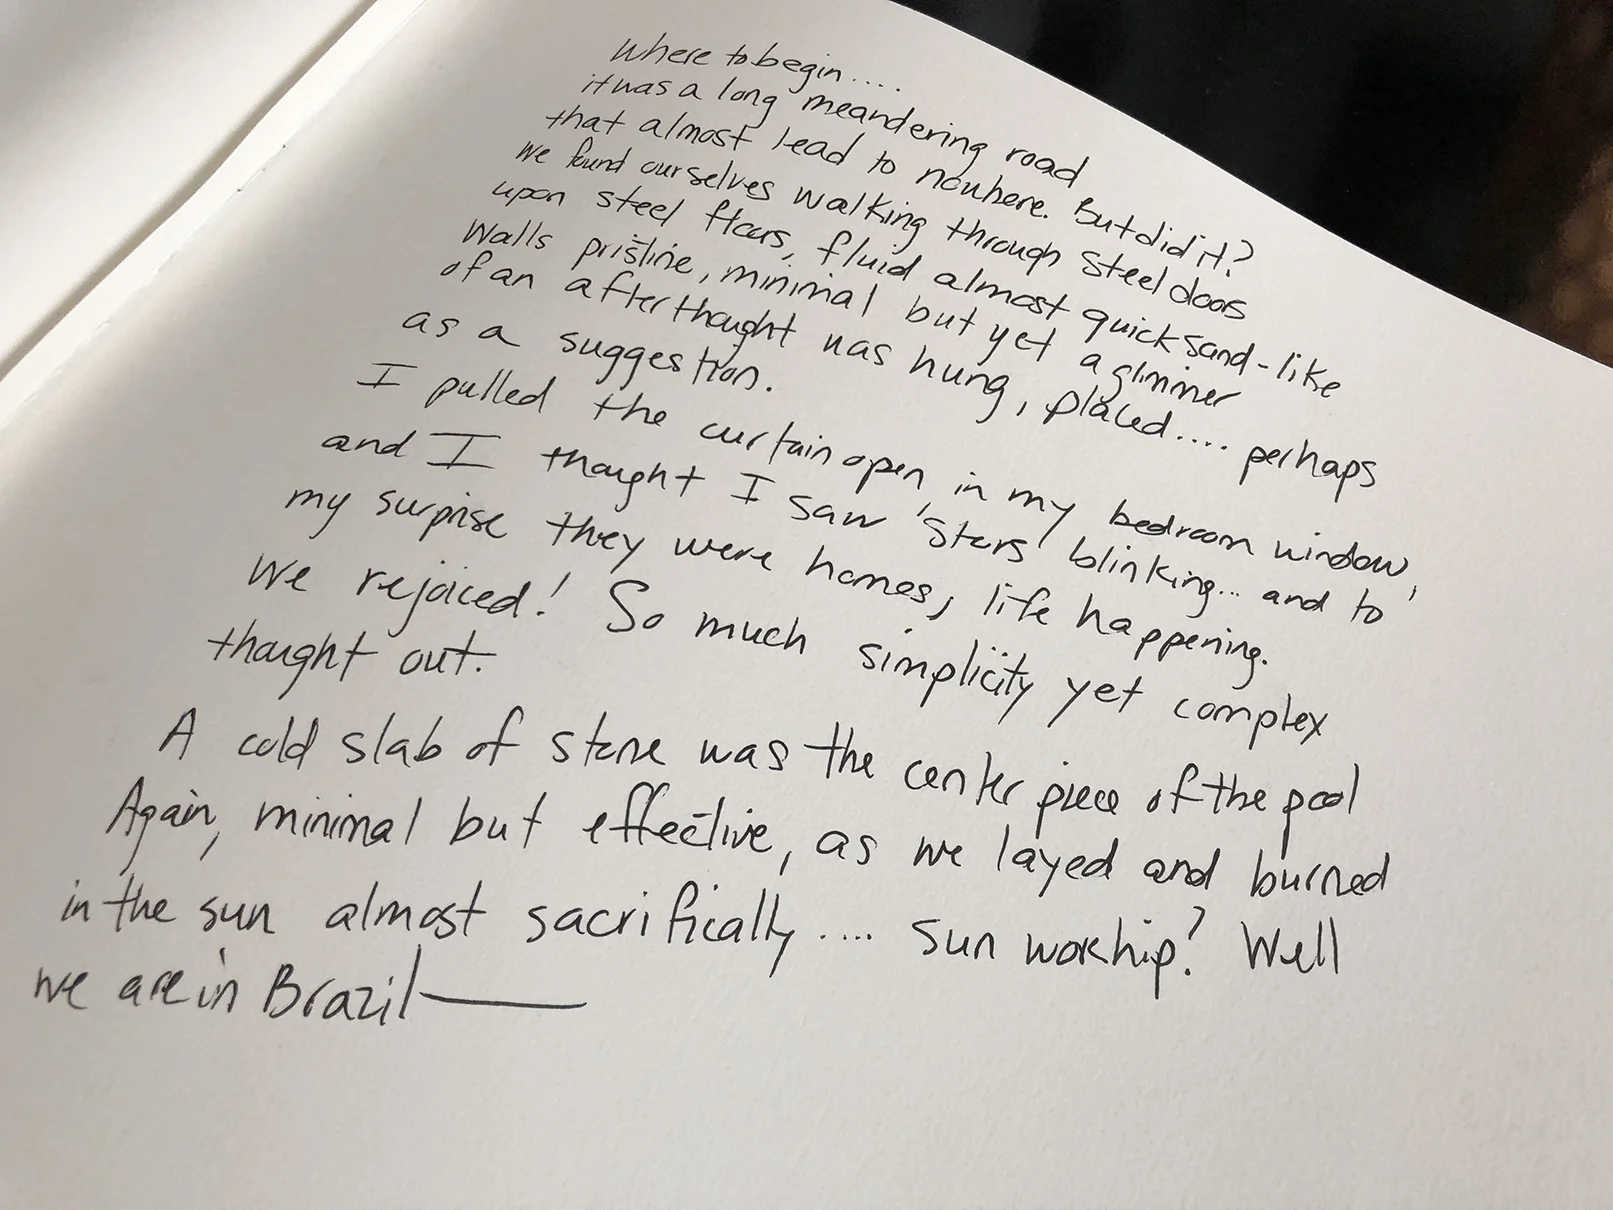 Where to begin....
it was a long meandering road
that almost lead to nowhere. But did it?
We found ourselves walking through steel doors
upon steel floors, fluid almost quicksand-like
Walls pristine, minimal but yet a glimmer
of an afterthought was hung, placed.... perhaps
as a suggestion.
I pulled the curtain open in my bedroom window,
and I thought I saw 'stars' blinking... and to
my surprise they were homes, life happening.
We rejoiced! So much simplicity yet complex
thought out.
A cold slab of stone was the center piece of the pool
Again, minimal but effective, as we layed and burned
in the sun almost sacrifically.... sun worship? Well
we are in Brazil—